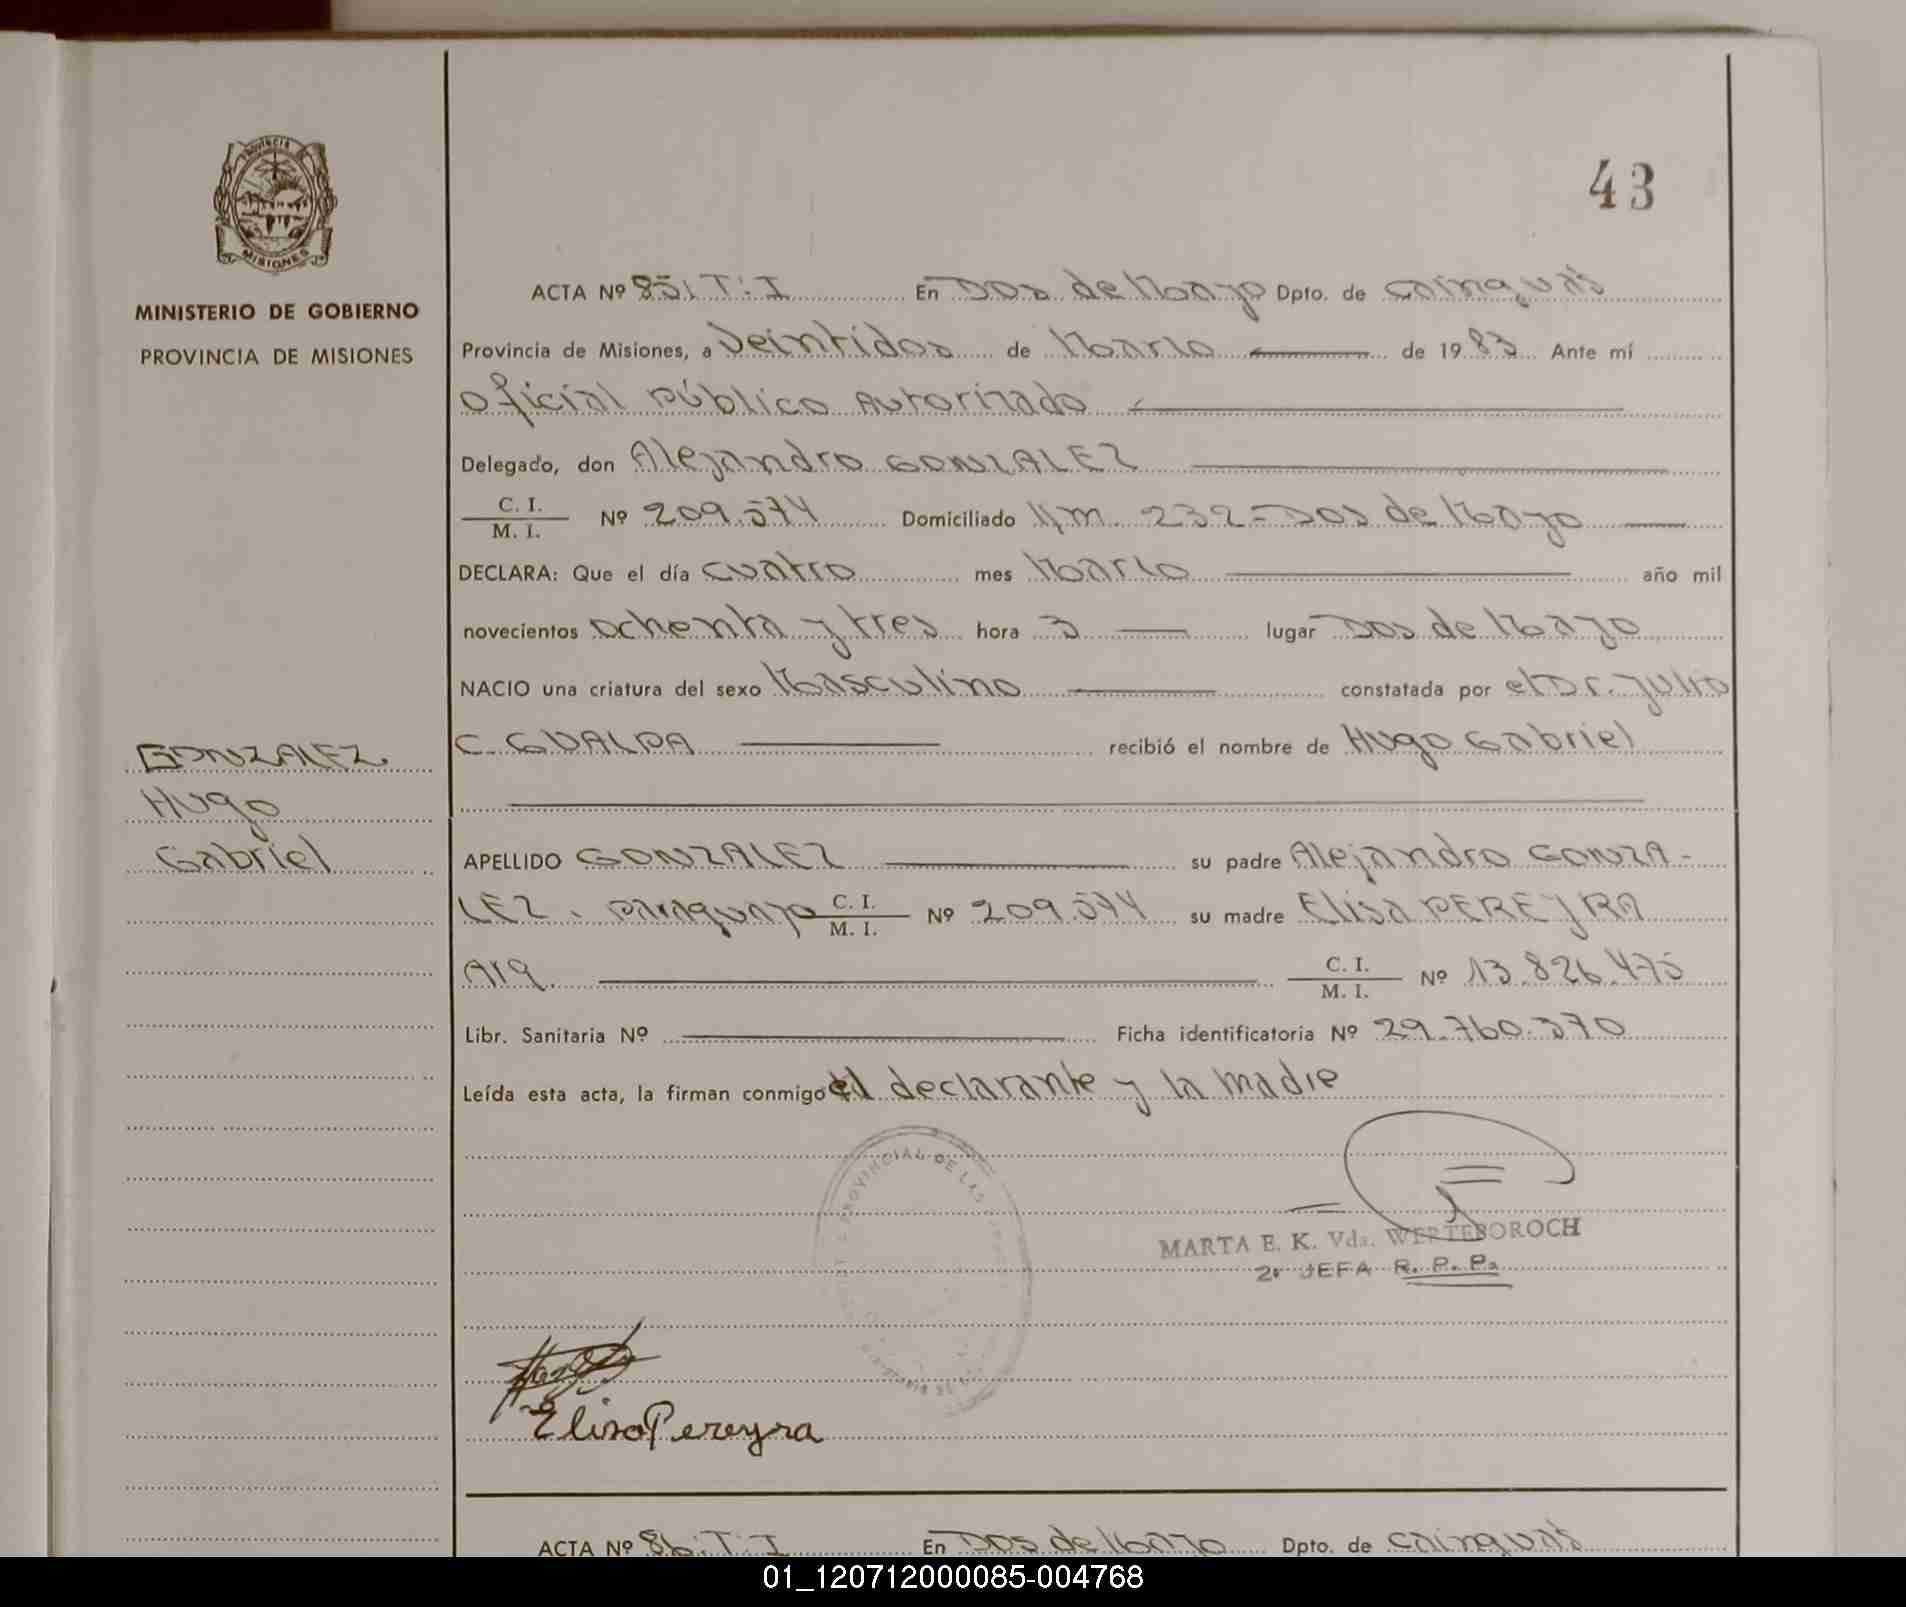 43
PROVINCIA DE
MISIONES
MINISTERIO DE GOBIERNO
PROVINCIA DE MISIONES
ACTA Nº 85: T: I En Dos de Mayo Dpto. de Cainguás
Provincia de Misiones, a Veintidos de Marzo de 1983 Ante mí
Oficial Público Autorizado
Delegado, don Alejandro GONZALEZ
C. I.
M. I. Nº 209.574 Domiciliado Km. 232 - Dos de Mayo
DECLARA: Que el día cuatro mes Marzo año mil
novecientos ochenta y tres hora 3 lugar Dos de Mayo
NACIO una criatura del sexo Masculino constatada por el Dr. Julio
C. GUALPA recibió el nombre de Hugo Gabriel
GONZALEZ
Hugo
Gabriel
APELLIDO GONZALEZ su padre Alejandro GONZA-
LEZ. paraguayo C. I.
M. I. Nº 209.574 su madre Elisa PEREYRA
Arg. C. I.
M. I. Nº 13.826.475
Libr. Sanitaria Nº Ficha identificatoria Nº 29.760.370
Leída esta acta, la firman conmigo el declarante y la Madre
PROVINCIAL DE LAS
MARTA E. K. Vda. WERTEBOROCH
2ª JEFA R. P. P.
Elisa Pereyra
ACTA Nº 86: T: I En Dos de Mayo Dpto. de Cainguás
01_120712000085-004768